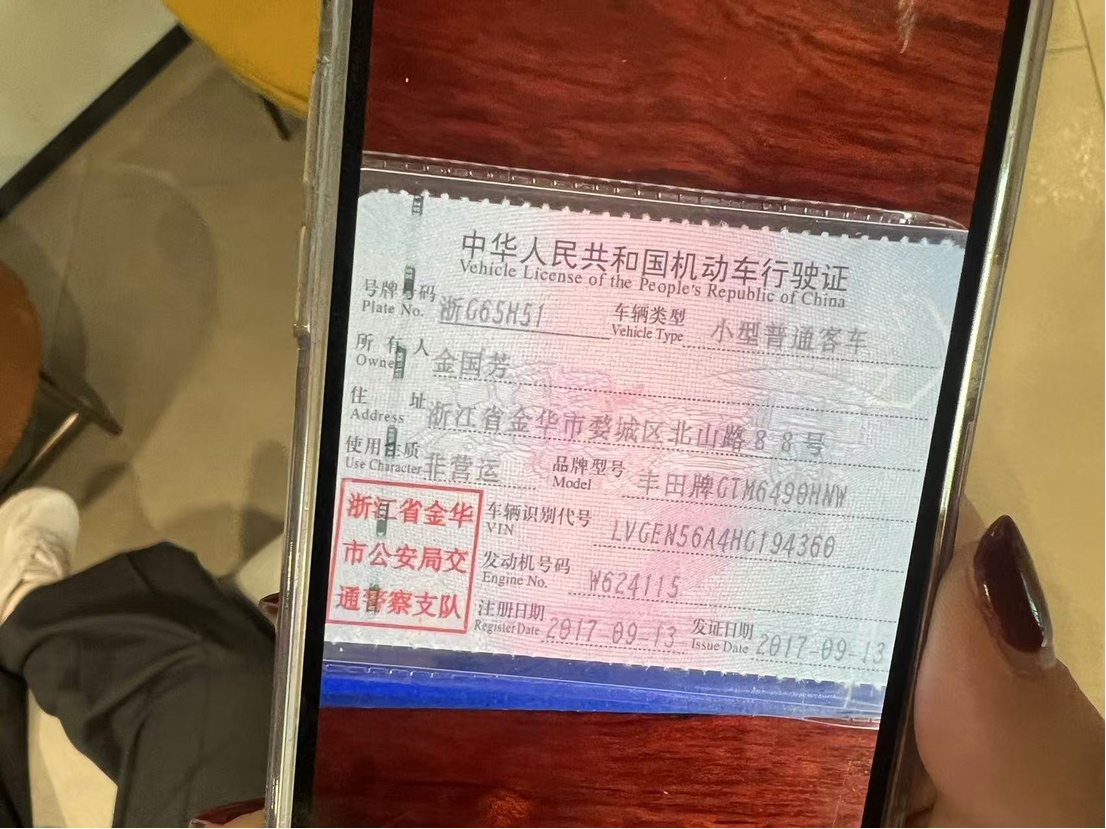 中华人民共和国机动车行驶证
Vehicle License of the People's Republic of China
号牌号码 浙G65H51 车辆类型 小型普通客车
Plate No. Vehicle Type
所有人 金国芳
Owner
住址 浙江省金华市婺城区北山路88号
Address
使用性质 非营运 品牌型号 丰田牌GTM6490HNW
Use Character Model
浙江省金华
市公安局交
通警察支队
车辆识别代号 LVGEN56A4HG194360
VIN
发动机号码 W624115
Engine No.
注册日期 2017-09-13 发证日期 2017-09-13
Register Date Issue Date